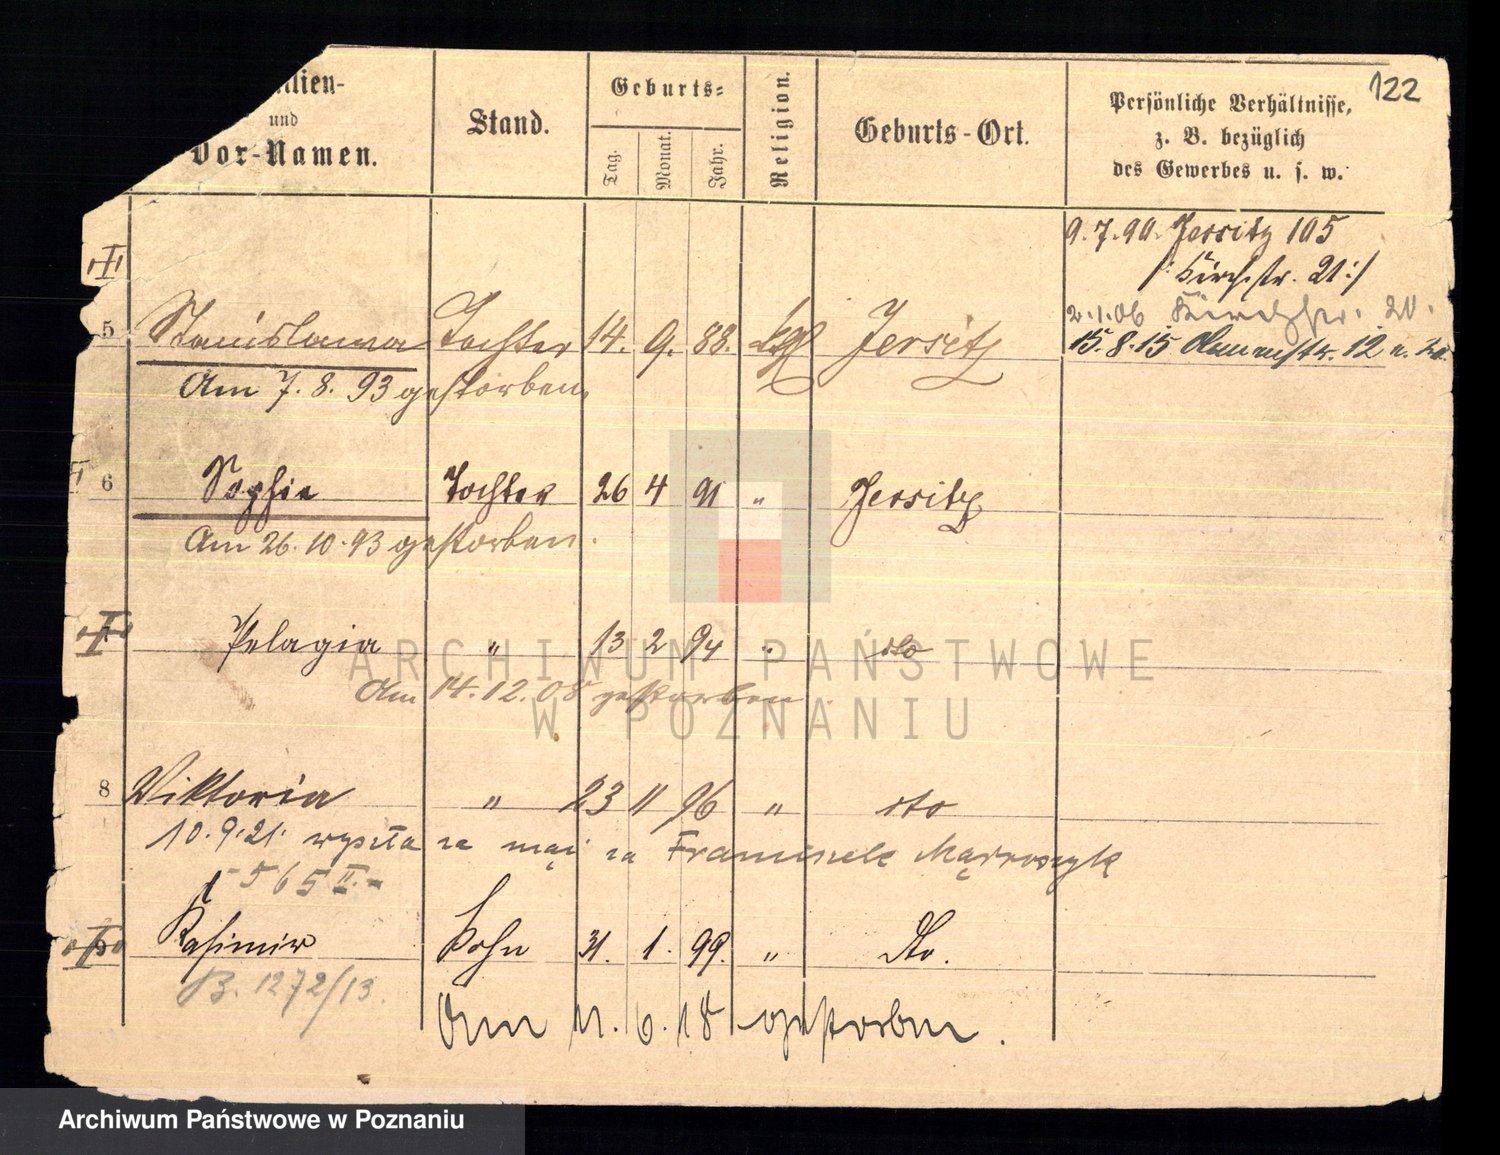 122
lien-
und
Vor-Namen.
Stand.
Geburts=
Tag.
Monat.
Jahr.
Religion.
Geburts-Ort.
Persönliche Verhältnisse,
z. B. bezüglich
des Gewerbes u. s. w.
9.7.90. Jersitz 105
/: Kirchstr. 21 :/
2.1.06 Kirchstr. 20.
15.8.15 12
5 Stanislawa Tochter 14. 9. 88. kath Jersitz
Am 7. 8. 93 gestorben.
6 Sophie Tochter 26 4 91 " Jersitz
Am 26. 10. 93 gestorben.
Pelagia " 13 2 94 " dto
Am 14. 12. 08 gestorben
8 Viktoria " 23 11 96 " dto
10.9.21. wyszła za mąż za Franciszek
565 II.
Kasimir Sohn 31. 1. 99. " Dto.
B. 1272/13.
Am 11. 6. 18 gestorben.
ARCHIWUM PAŃSTWOWE
W POZNANIU
Archiwum Państwowe w Poznaniu